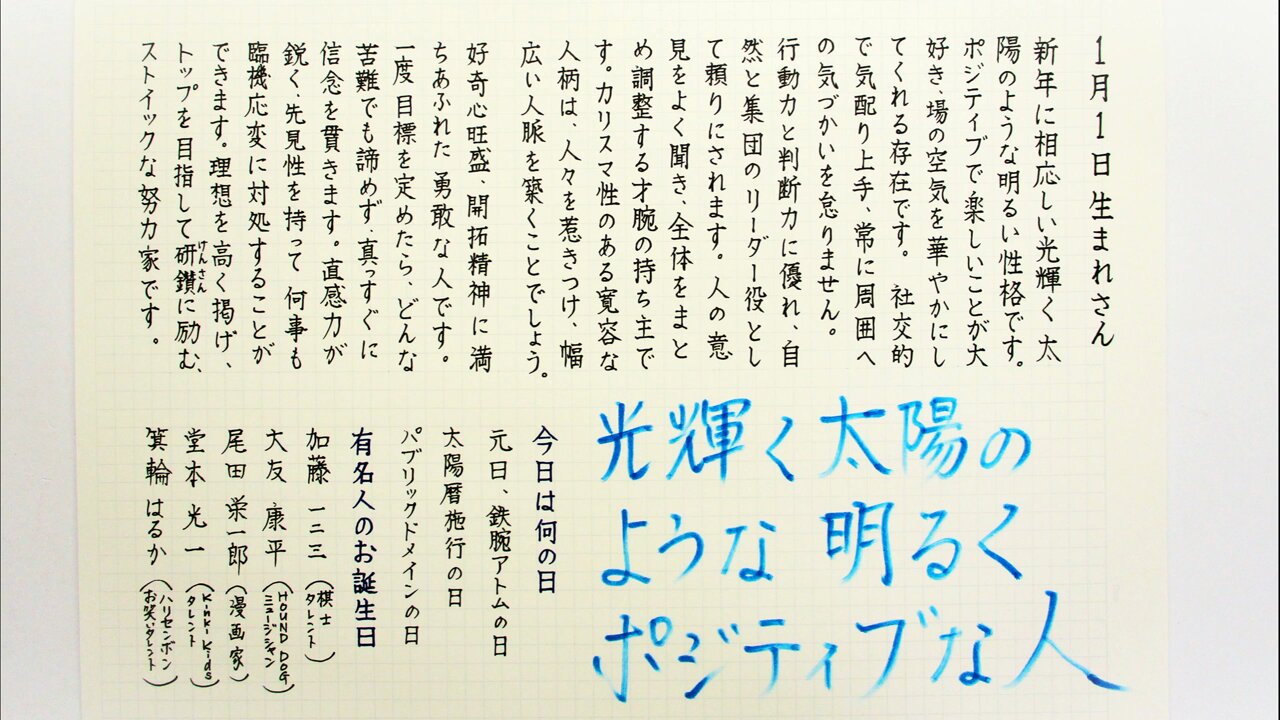 1月1日生まれさん
新年に相応しい光輝く太
陽のような明るい性格です。
ポジティブで楽しいことが大
好き、場の空気を華やかにし
てくれる存在です。 社交的
で気配り上手、常に周囲へ
の気づかいを怠りません。
行動力と判断力に優れ、自
然と集団のリーダー役とし
て頼りにされます。人の意
見をよく聞き、全体をまと
め調整する才腕の持ち主で
す。カリスマ性のある寛容な
人柄は、人々を惹きつけ、幅
広い人脈を築くことでしょう。
好奇心旺盛、開拓精神に満
ちあふれた勇敢な人です。
一度目標を定めたら、どんな
苦難でも諦めず、真っすぐに
信念を貫きます。直感力が
鋭く、先見性を持って何事も
臨機応変に対処することが
できます。理想を高く掲げ、
トップを目指して研鑽に励む、
けんさん
ストイックな努力家です。
光輝く太陽の
ような明るく
ポジティブな人
今日は何の日
元日、鉄腕アトムの日
太陽暦施行の日
パブリックドメインの日
有名人のお誕生日
加藤 一二三 (棋士 タレント)
大友 康平 (HOUND DOG ミュージシャン)
尾田 栄一郎 (漫画家)
堂本 光一 (Kinki Kids タレント)
箕輪 はるか (ハリセンボン お笑いタレント)